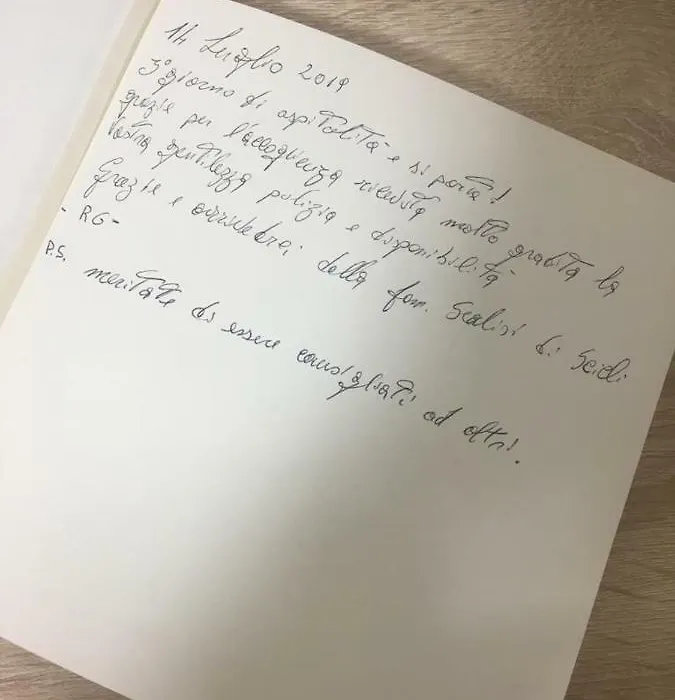 14 Luglio 2019
3° giorno di ospitalità e si parte!
grazie per l'accoglienza ricevuta molto gradita la
Vostra gentilezza pulizia e disponibilità
Grazie e arrivederci dalla fam. Scalisi di Scicli
- RG -
P.S. meritate di essere consigliati ad altri.